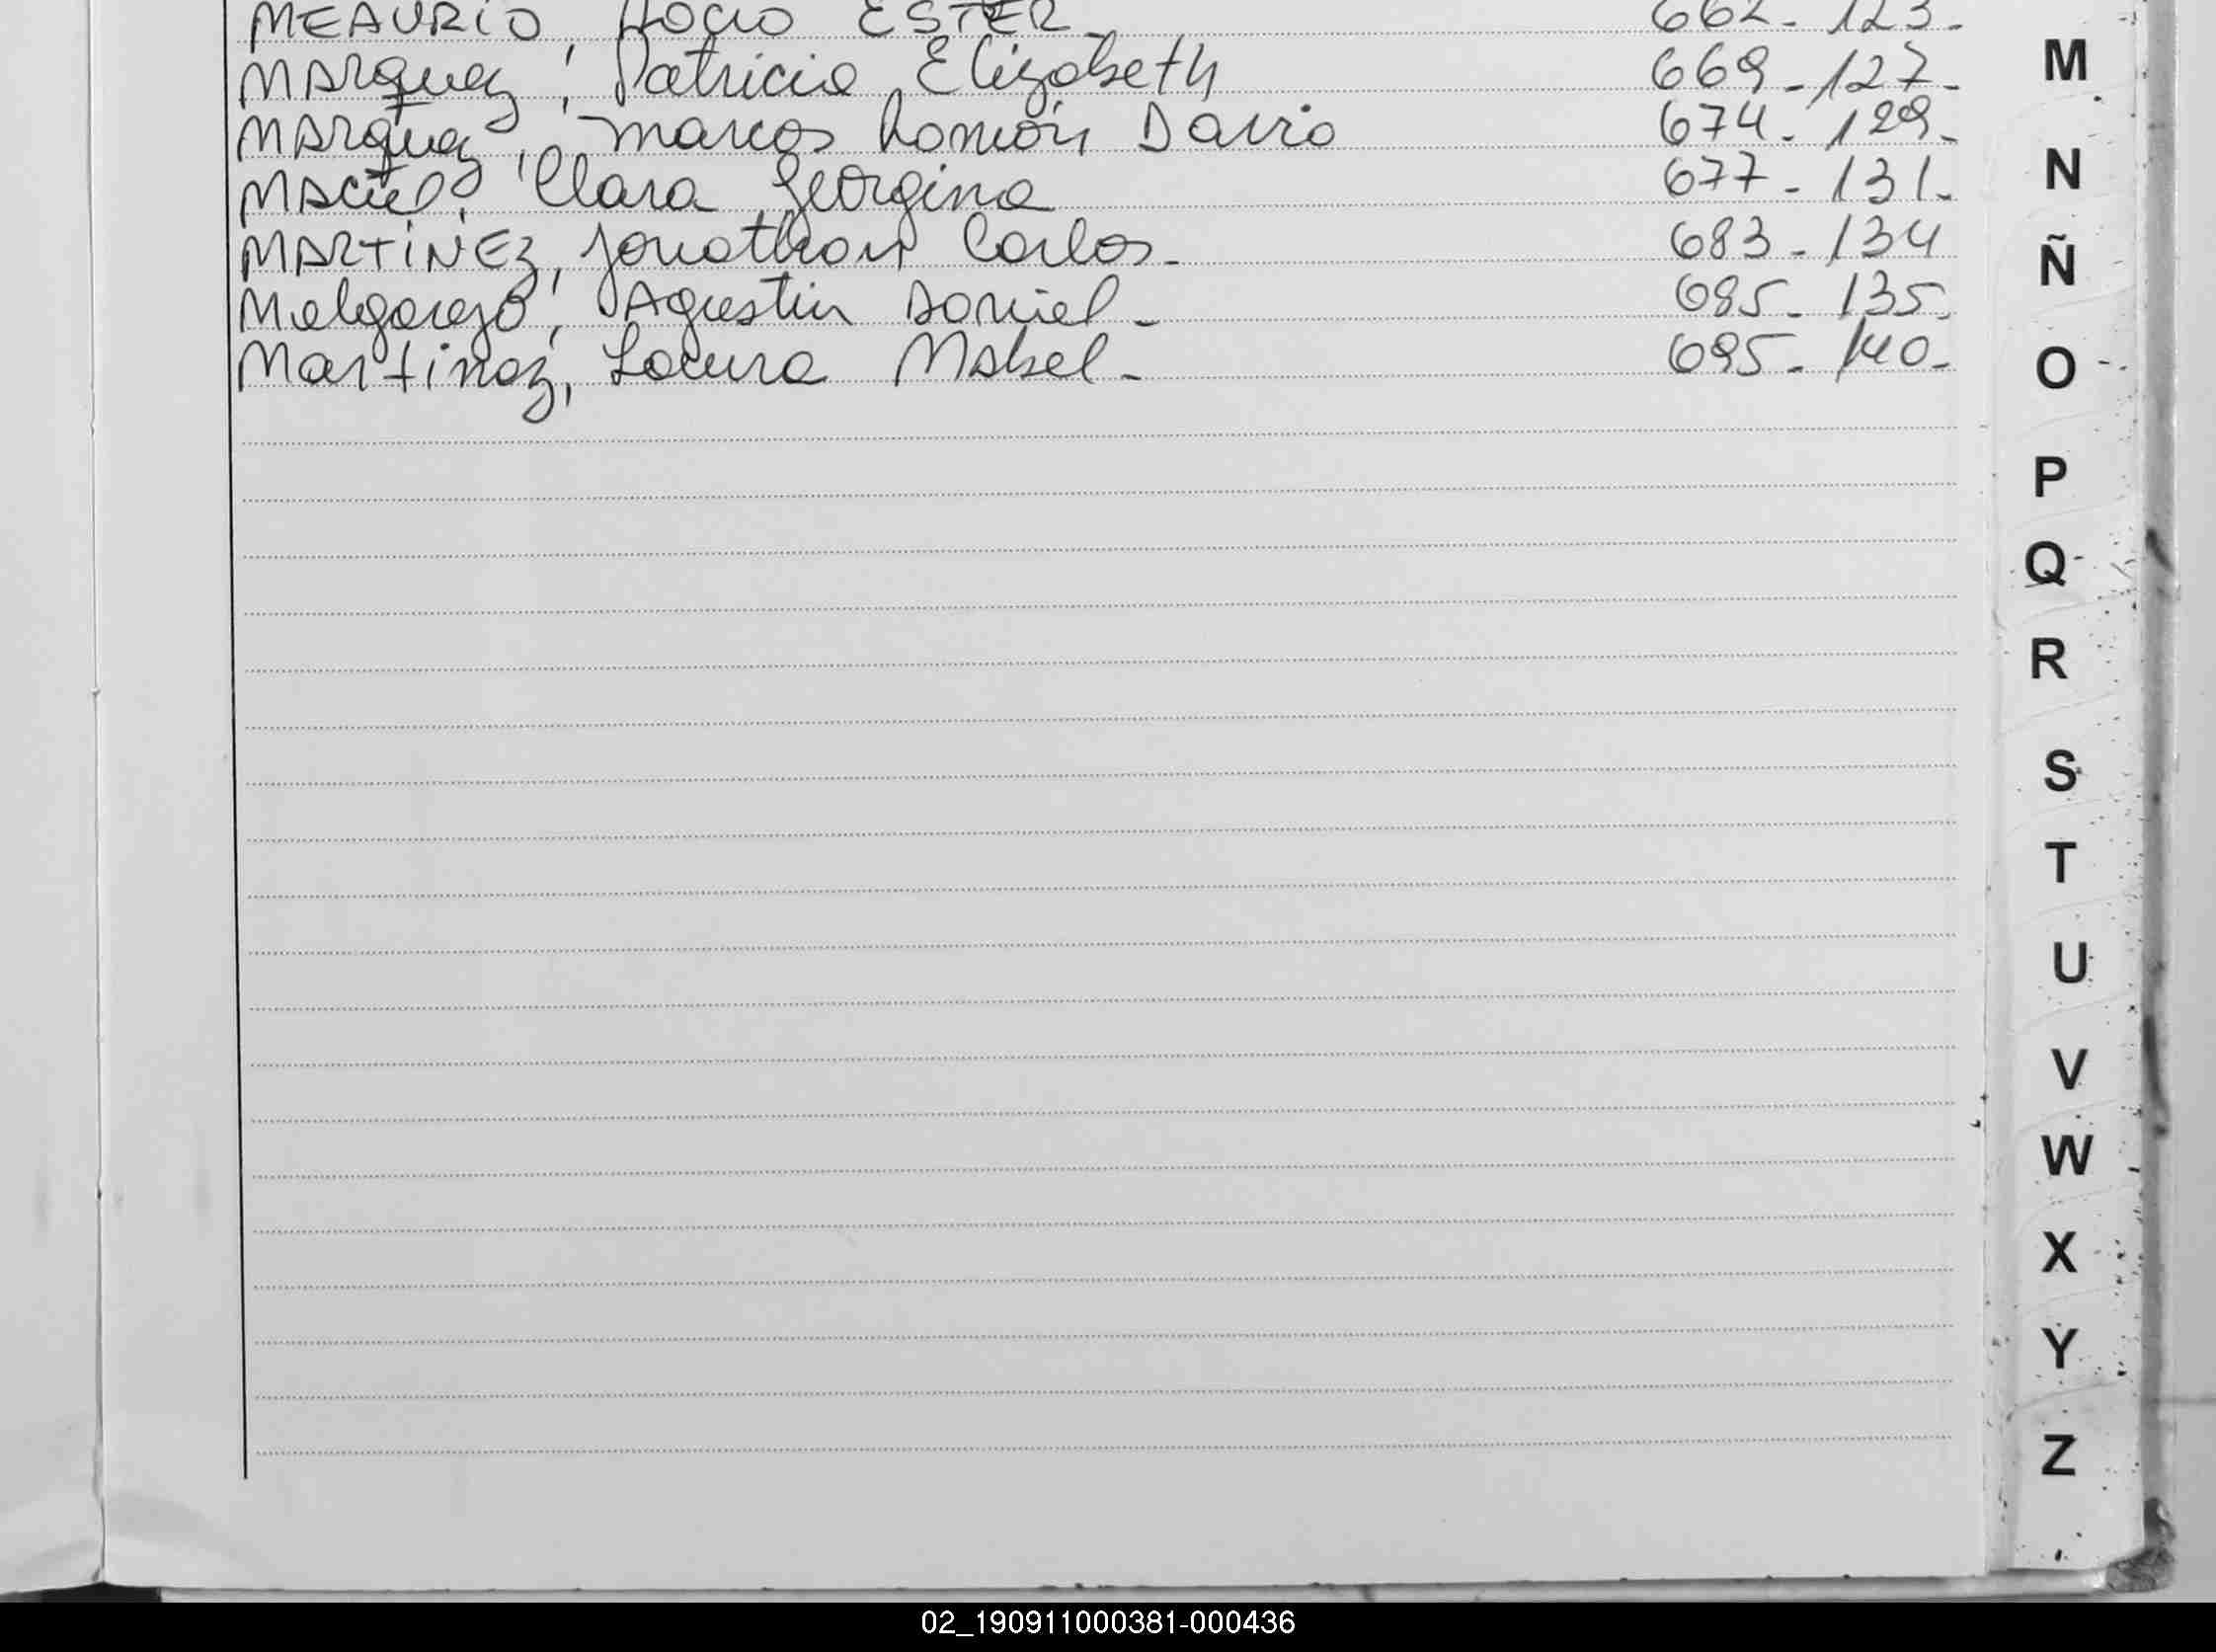 MEAURIO, Rocio ESTER - 662 - 123 -
MArquez, Patricia Elizabeth 669 - 127 -
MArquez, Marcos Ramón Dario 674 - 129 -
MAciel, Clara Georgina 677 - 131 -
MARTINEZ, Jonathan Carlos - 683 - 134
Melgarejo, Agustin Daniel - 685 - 135 -
Martinez, Laura Mabel - 695 - 140 -
M
N
Ñ
O
P
Q
R
S
T
U
V
W
X
Y
Z
02_190911000381-000436